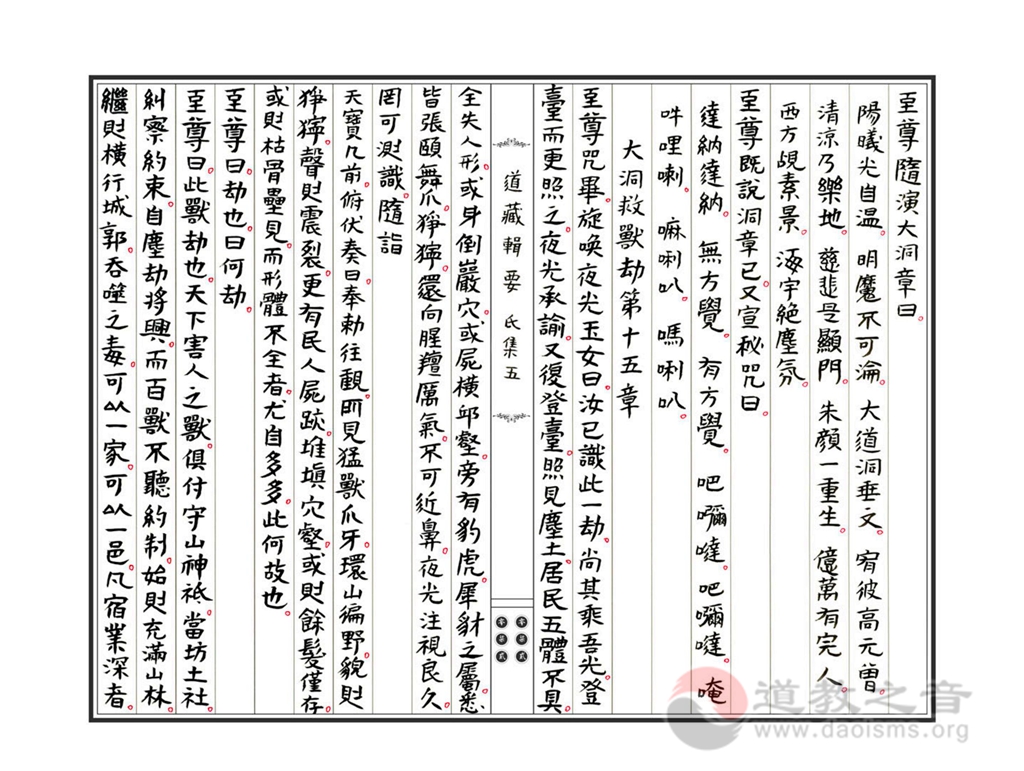 至尊隨演大洞章曰
陽曦光自溫 明魔不可淪 大道洞垂文 宥彼高元曽
清涼乃樂地 慈悲是顯門 朱顏一重生 億萬有完人
西方覘素景 逐宇絕塵氛
至尊既說洞章已又宣秘咒曰
達納達納 無方覺 有方覺 吧嚩噠吧嚩噠 唵
吽哩喇 嘛唎叭 嗎唎叭
大洞救獸劫第十五章
至尊咒畢旋喚夜光玉女曰汝已識此一劫尚其乘吾光登
臺而更照之夜光承諭又復登臺照見塵土居民五體不具
道藏輯要 氐集五
全失人形或身倒巖穴或屍橫邱壑旁有豹虎犀豺之屬悉
皆張頤舞爪猙獰還向腥羶厲氣不可近鼻夜光注視良久
罔可測識隨詣
天寶几前俯伏奏曰奉勅往觀即見猛獸爪牙環山徧野貌則
猙獰聲則震裂更有民人屍跡堆填穴壑或則餘髮僅存
或則枯骨壘見而形體不全者尤自多多此何故也
至尊曰劫也曰何劫
至尊曰此獸劫也天下害人之獸俱付守山神祇當坊土社
糾察約束自塵劫將興而百獸不聽約制始則充滿山林
繼則橫行城郭吞噬之毒可以一家可以一邑凡宿業深者
道教之音
www.daoisms.org